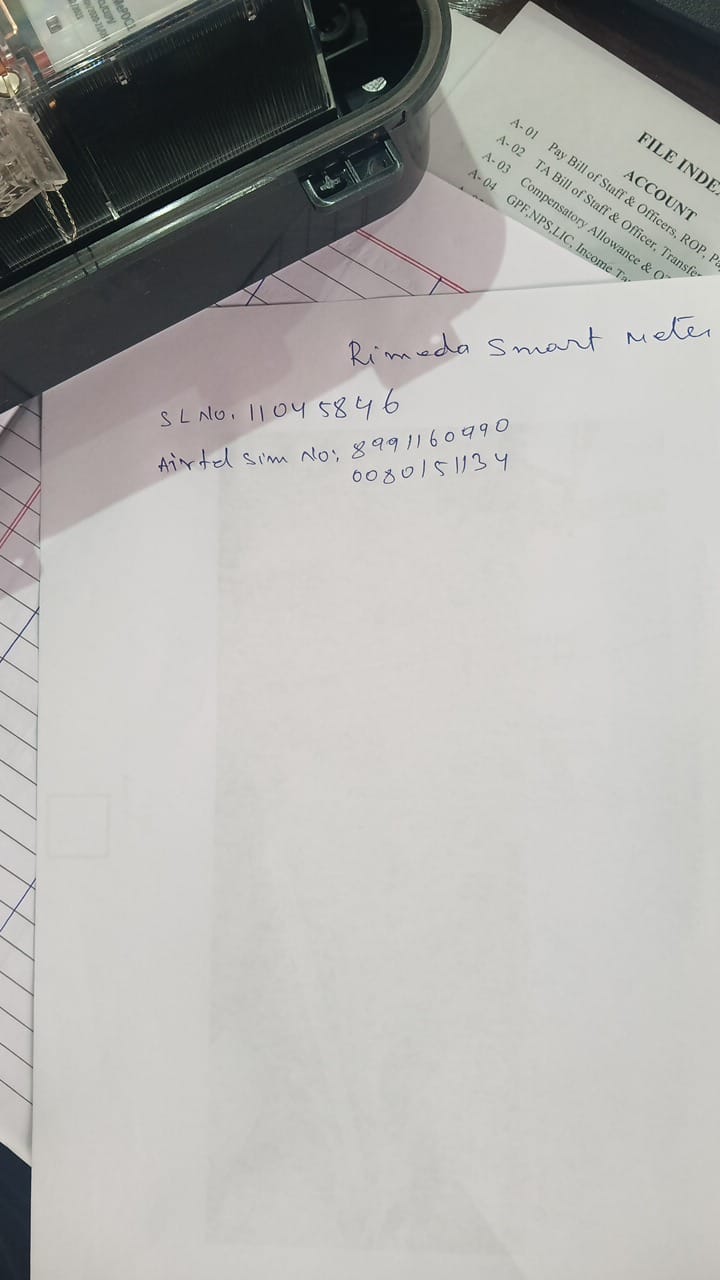 FILE INDE
ACCOUNT
A- 01 Pay Bill of Staff & Officers, ROP,
A- 02 TA Bill of Staff & Officer, Transfe
A- 03 Compensatory Allowance &
A- 04 GPF,NPS,LIC, Income Ta
Rimeda Smart Meter
SL No. 11045846
Airtel Sim No: 8991160990
0080151134